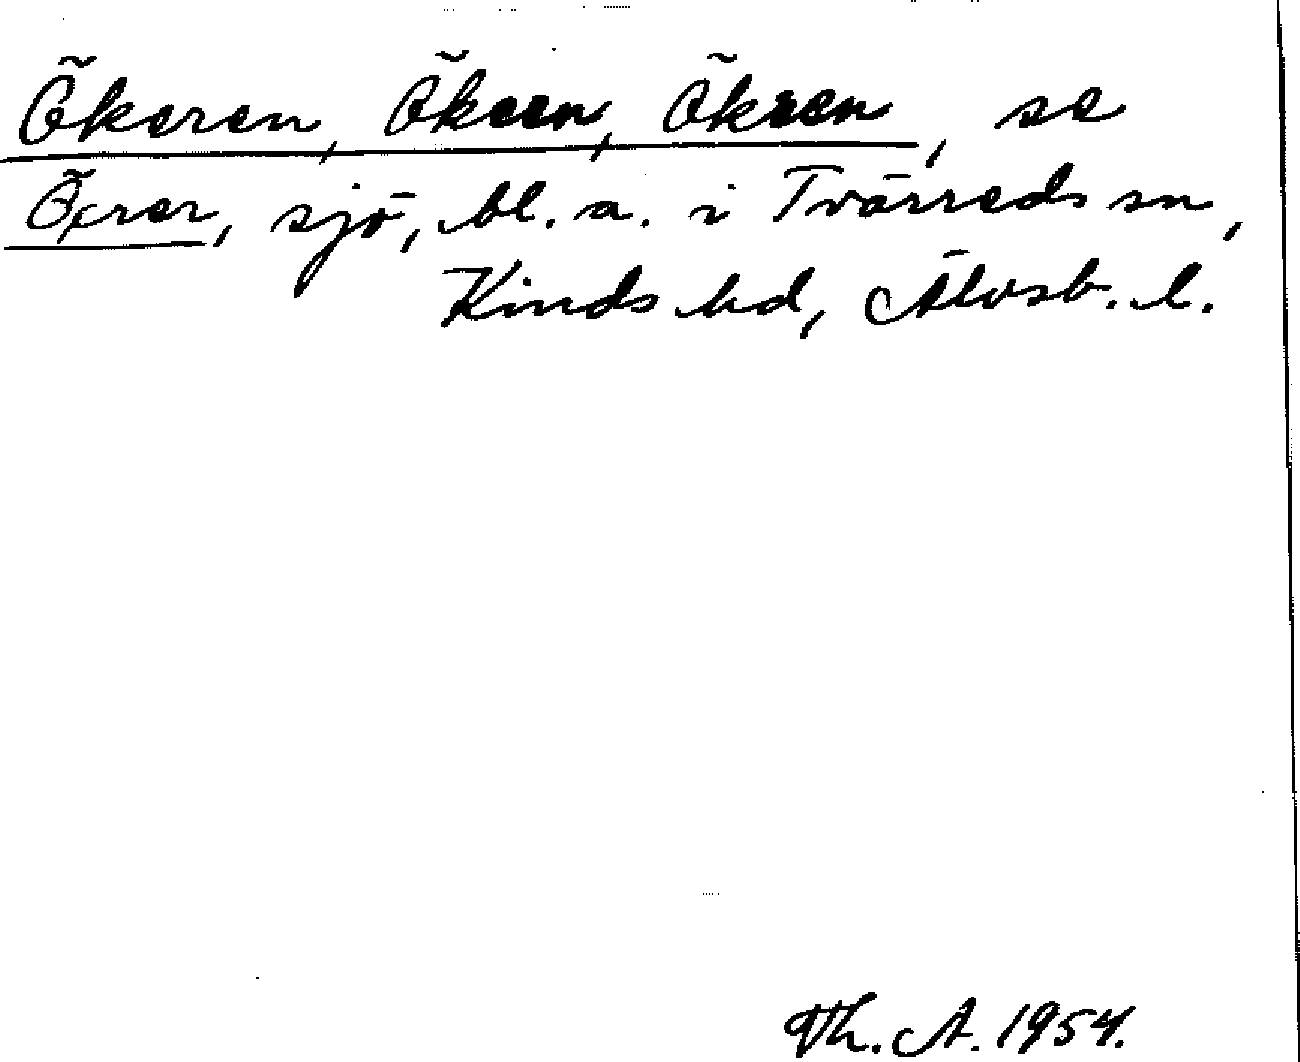 Ökeren, Ökeen, Ökren, se
Öxrer, sjö, bl. a. i Tvärreds sn,
Kinds hd, Älvsb. l.
Th. A. 1954.